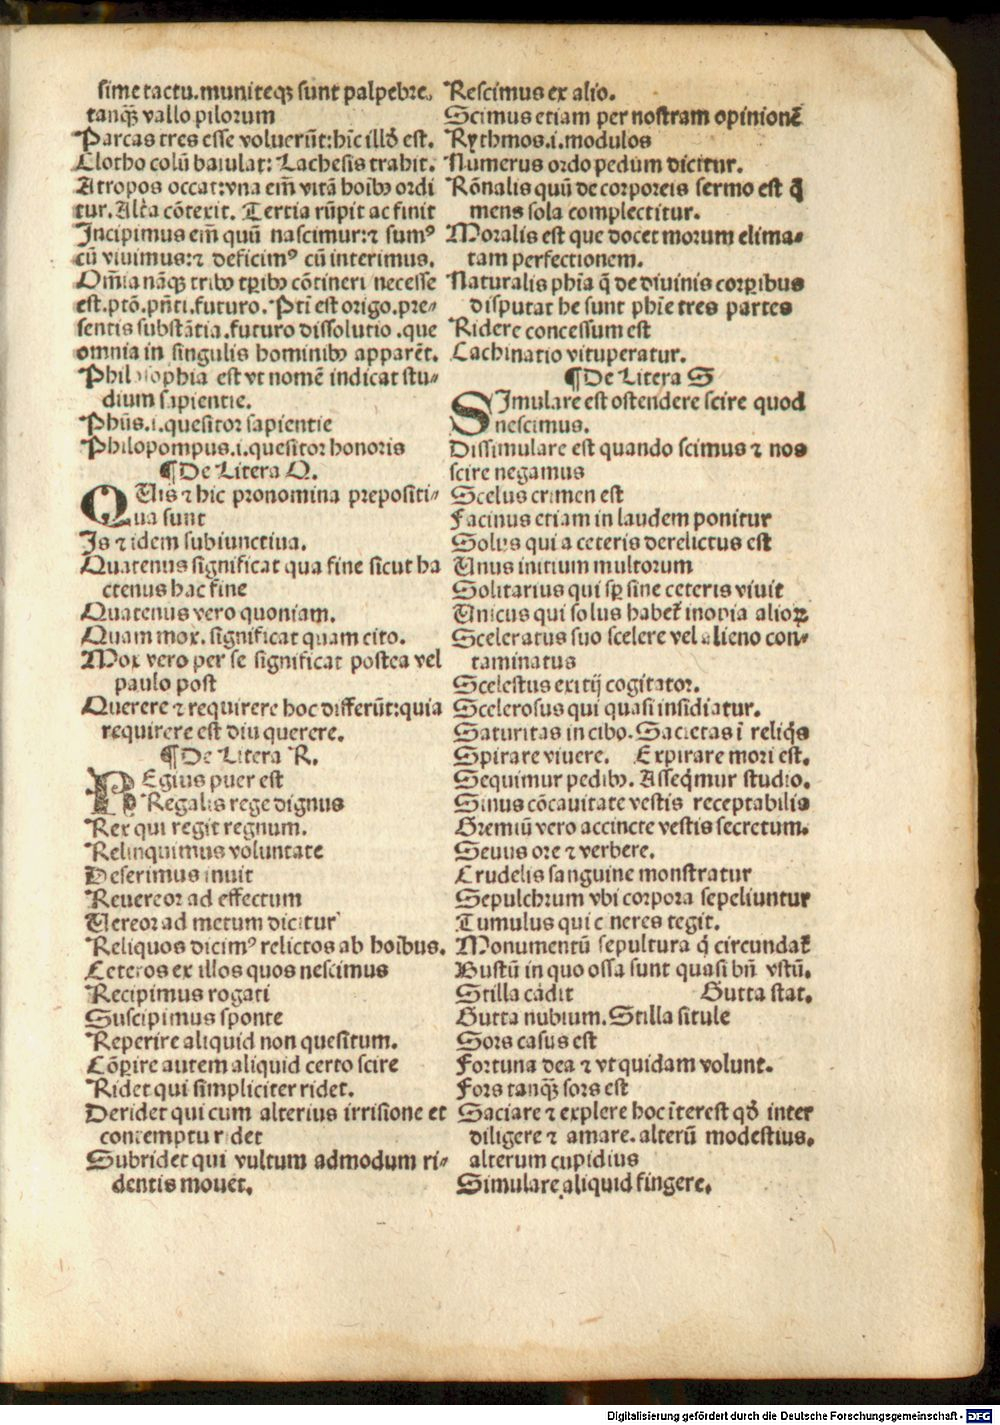 sime tactu.muniteqꝫ sunt palpebre.
tanqꝫ̄ vallo pilorum
Parcas tres esse voluerūt:hīc illḋ est.
Clotho colū baiulat: Lachesis trahit.
Atropos occat:vna em̄ vitā hoibꝰ ordi
tur. Alt̄a cōtexit. Tertia rūpit ac finit
Incipimus em̄ quū nascimur:⁊ sumꝰ
cū viuimus:⁊ deficimꝰ cū interimus.
Om̄ia nāqꝫ tribꝰ tꝑibꝰ cōtineri necesse
est.ptō.pn̄ti.futuro. Ptī est origo.pre⸗
sentis substātia.futuro dissolutio.que
omnia in singulis hominibꝰ apparēt.
Philosophia est vt nomē indicat stu⸗
dium sapientie.
Phūs.i.quesitor sapientie
Philopompus.i.quesitor honoris
¶De Litera Q.
QUis ⁊ hic pronomina prepositi⸗
ua sunt
Is ⁊ idem subiunctiua.
Quatenus significat qua fine sicut ha
ctenus hac fine
Quatenus vero quoniam.
Quam mox. significat quam cito.
Mox vero per se significat postea vel
paulo post
Querere ⁊ requirere hoc differūt:quia
requirere est diu querere.
¶De Litera R.
REgius puer est
Regalis rege dignus
Rex qui regit regnum.
Relinquimus voluntate
Deserimus inuit
Reuereor ad effectum
Uereor ad metum dicitur
Reliquos dicimꝰ relictos ab hoibus.
Ceteros ex illos quos nescimus
Recipimus rogati
Suscipimus sponte
Reperire aliquid non quesitum.
Cōꝑire autem aliquid certo scire
Ridet qui simpliciter ridet.
Deridet qui cum alterius irrisione et
contemptu ridet
Subridet qui vultum admodum ri⸗
dentis mouet.
Rescimus ex alio.
Scimus etiam per nostram opinionē
Rythmos.i.modulos
Numerus ordo pedum dicitur.
Rōnalis quū de corporeis sermo est q̄
mens sola complectitur.
Moralis est que docet morum elima⸗
tam perfectionem.
Naturalis phīa q̄ de diuinis corꝑibus
disputat he sunt phīe tres partes
Ridere concessum est
Cachinatio vituperatur.
¶De Litera S
SImulare est ostendere scire quod
nescimus.
Dissimulare est quando scimus ⁊ nos
scire negamus
Scelus crimen est
Facinus etiam in laudem ponitur
Solus qui a ceteris derelictus est
Unus initium multorum
Solitarius qui sꝑ sine ceteris viuit
Unicus qui solus habet̄ inopia alioꝝ
Sceleratus suo scelere vel alieno con⸗
taminatus
Scelestus exitij cogitator.
Scelerosus qui quasi insidiatur.
Saturitas in cibo. Sacietas ī reliq̄s
Spirare viuere. Expirare mori est.
Sequimur pedibꝰ. Asseq̄mur studio.
Sinus cōcauitate vestis receptabilis
Gremiū vero accincte vestis secretum.
Seuus ore ⁊ verbere.
Crudelis sanguine monstratur
Sepulchrum vbi corpora sepeliuntur
Tumulus qui cineres tegit.
Monumentū sepultura q̄ circundat̄
Bustū in quo ossa sunt quasi bn̄ vstū.
Stilla cadit Gutta stat.
Gutta nubium. Stilla situle
Sors casus est
Fortuna dea ⁊ vt quidam volunt.
Fors tanqꝫ̄ sors est
Saciare ⁊ explere hoc īterest qḋ inter
diligere ⁊ amare. alterū modestius.
alterum cupidius
Simulare aliquid fingere.
Digitalisierung gefördert durch die Deutsche Forschungsgemeinschaft - DFG